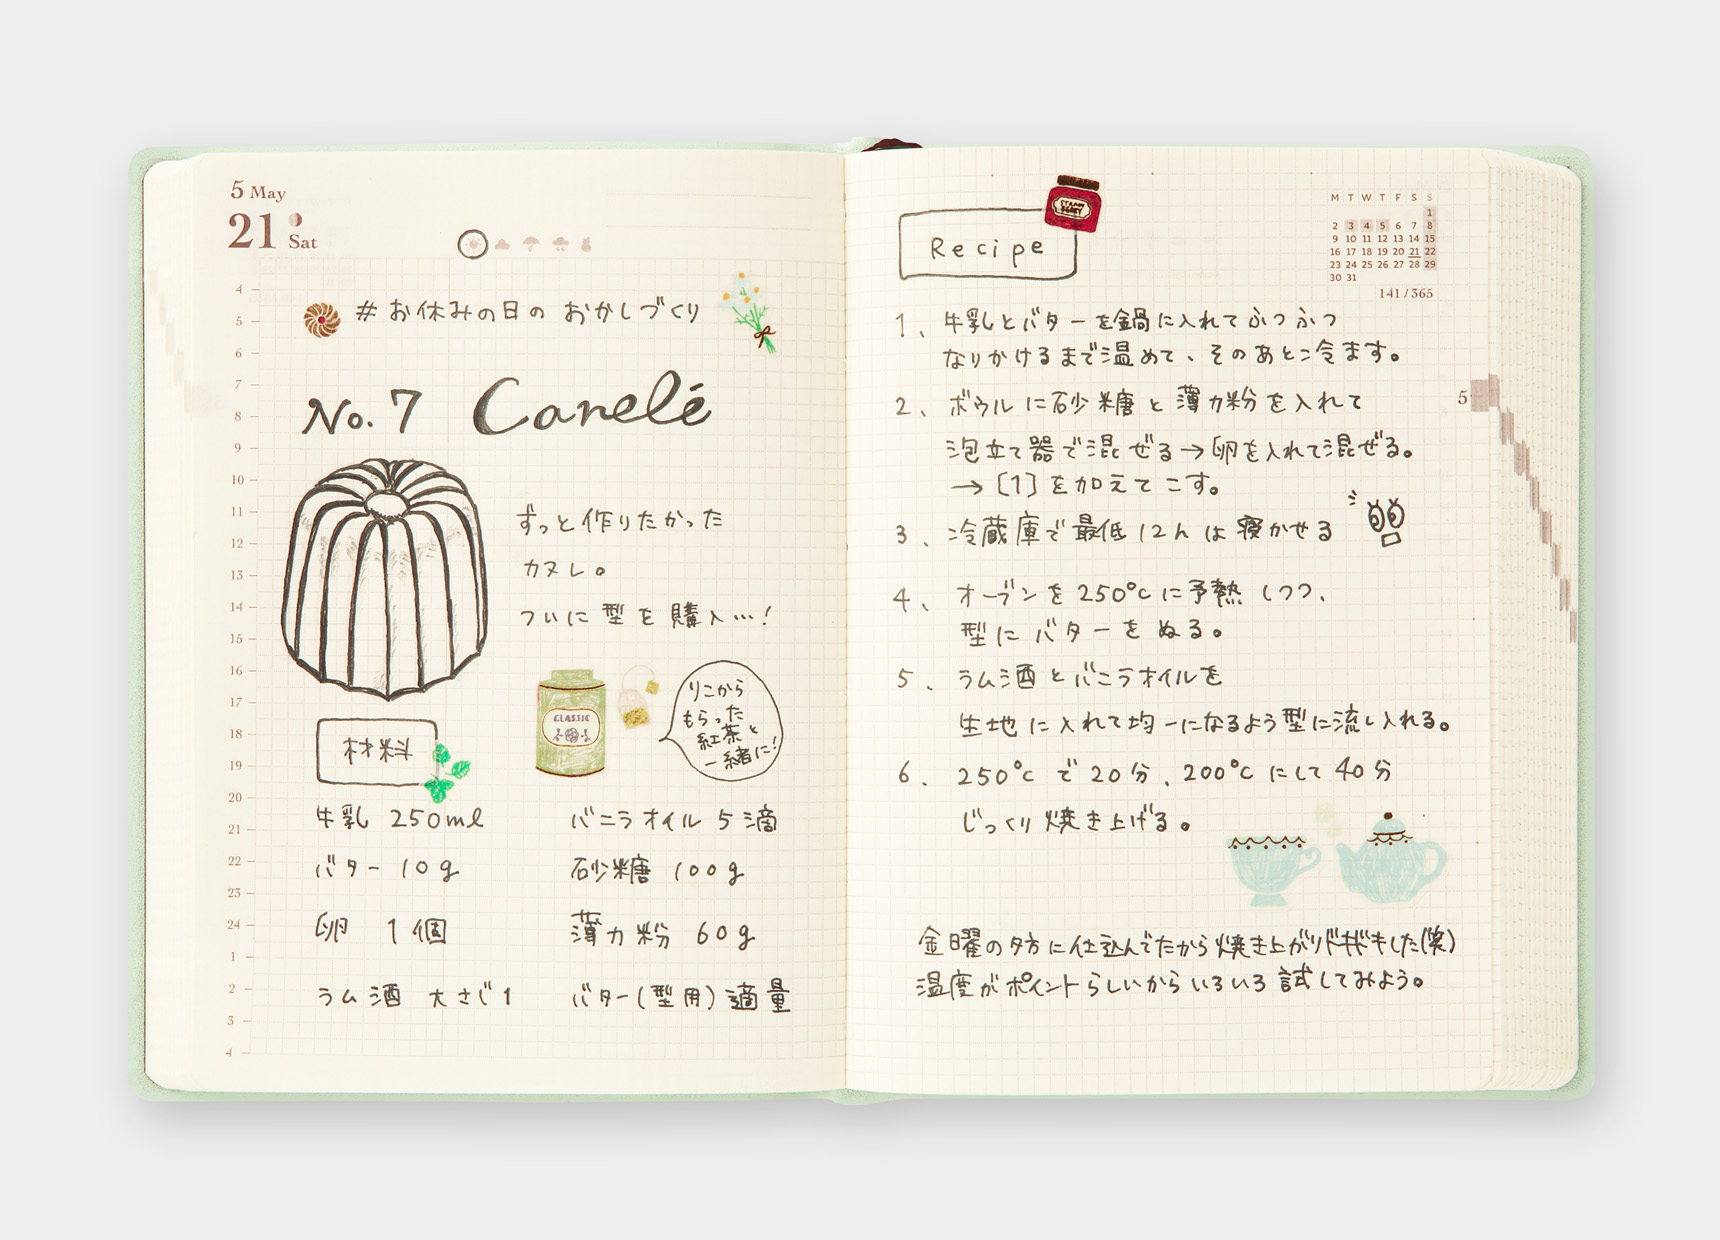 5 May
21 Sat
4
5
6
7
8
9
10
11
12
13
14
15
16
17
18
19
20
21
22
23
24
1
2
3
4
#お休みの日のおかしづくり
No.7 Canelé
ずっと作りたかった
カヌレ。
ついに型を購入…!
CLASSIC
りこから
もらった
紅茶と
一緒に!
材料
牛乳 250ml
バター 10g
卵 1個
ラム酒 大さじ1
バニラオイル 5滴
砂糖 100g
薄力粉 60g
バター(型用)適量
Recipe
M T W T F S S
1
2 3 4 5 6 7 8
9 10 11 12 13 14 15
16 17 18 19 20 21 22
23 24 25 26 27 28 29
30 31
141/365
5
1、牛乳とバターを鍋に入れてふつふつ
なりかけるまで温めて、そのあと冷ます。
2、ボウルに砂糖と薄力粉を入れて
泡立て器で混ぜる→卵を入れて混ぜる。
→[1]を加えてこす。
3、冷蔵庫で最低12hは寝かせる
4、オーブンを250℃に予熱しつつ、
型にバターをぬる。
5、ラム酒とバニラオイルを
生地に入れて均一になるよう型に流し入れる。
6、250℃で20分、200℃にして40分
じっくり焼き上げる。
金曜の夕方に仕込んでたから焼き上がりドキドキした(笑)
温度がポイントらしいからいろいろ試してみよう。